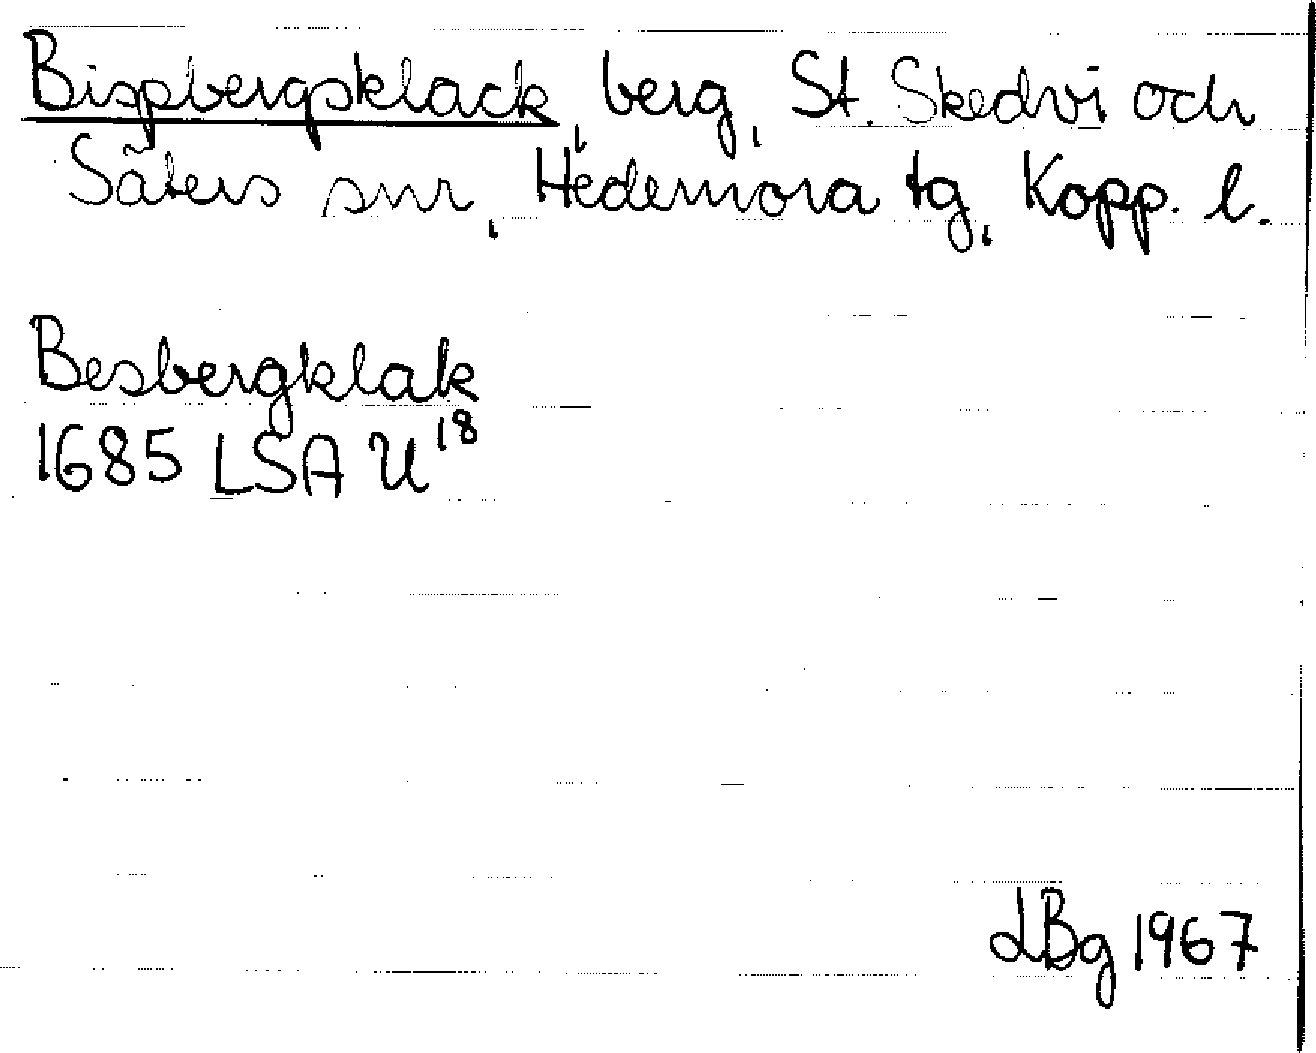 Bispbergsklack, berg, St. Skedvi och
Säters snr, Hedemora tg, Kopp. l.
Besbergklak
1685 LSA U 18
LBg 1967